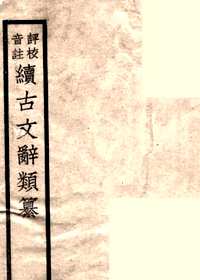 評校
音註
續古文辭類纂